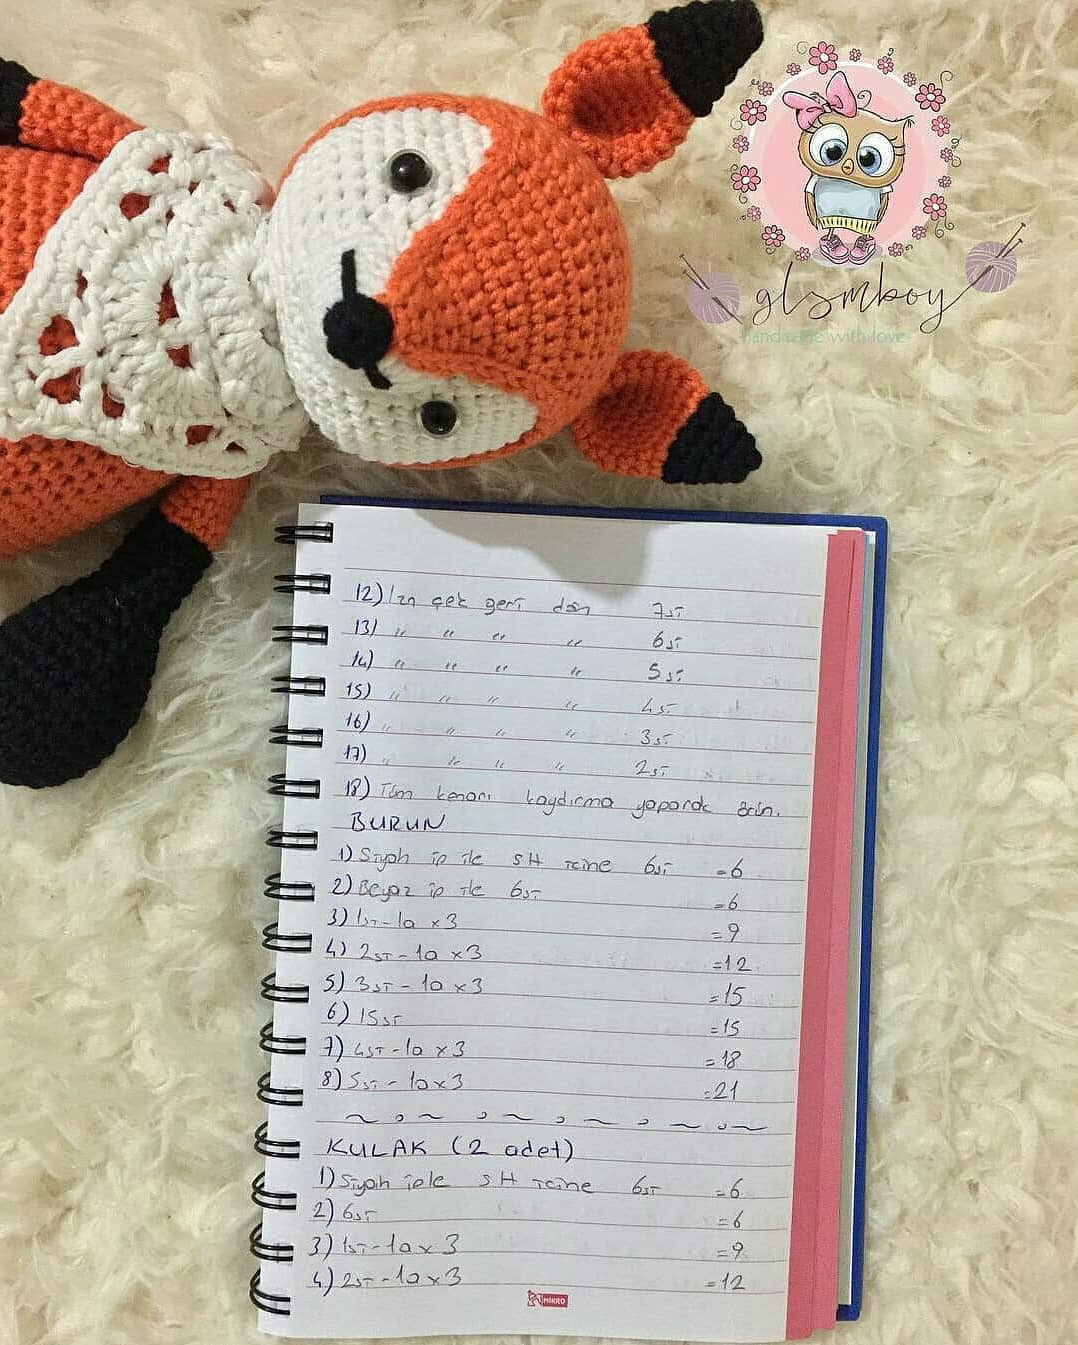 glsmboy
handmade with love
12) 1zn çek geri dön 7sı
13) " " " " 6sı
14) " " " " 5sı
15) " " " " 4sı
16) " " " " 3sı
17) " " " " 2sı
18) Tüm kenarı kaydırma yaparak örün.
BURUN
1) Siyah ip ile SH içine 6sı =6
2) Beyaz ip ile 6sı =6
3) 1sı-1a x3 =9
4) 2sı-1a x3 =12
5) 3sı-1a x3 =15
6) 15sı =15
7) 4sı-1a x3 =18
8) 5sı-1a x3 =21
KULAK (2 adet)
1) Siyah iple SH içine 6sı =6
2) 6sı =6
3) 1sı-1a x3 =9
4) 2sı-1a x3 =12
MİKRO